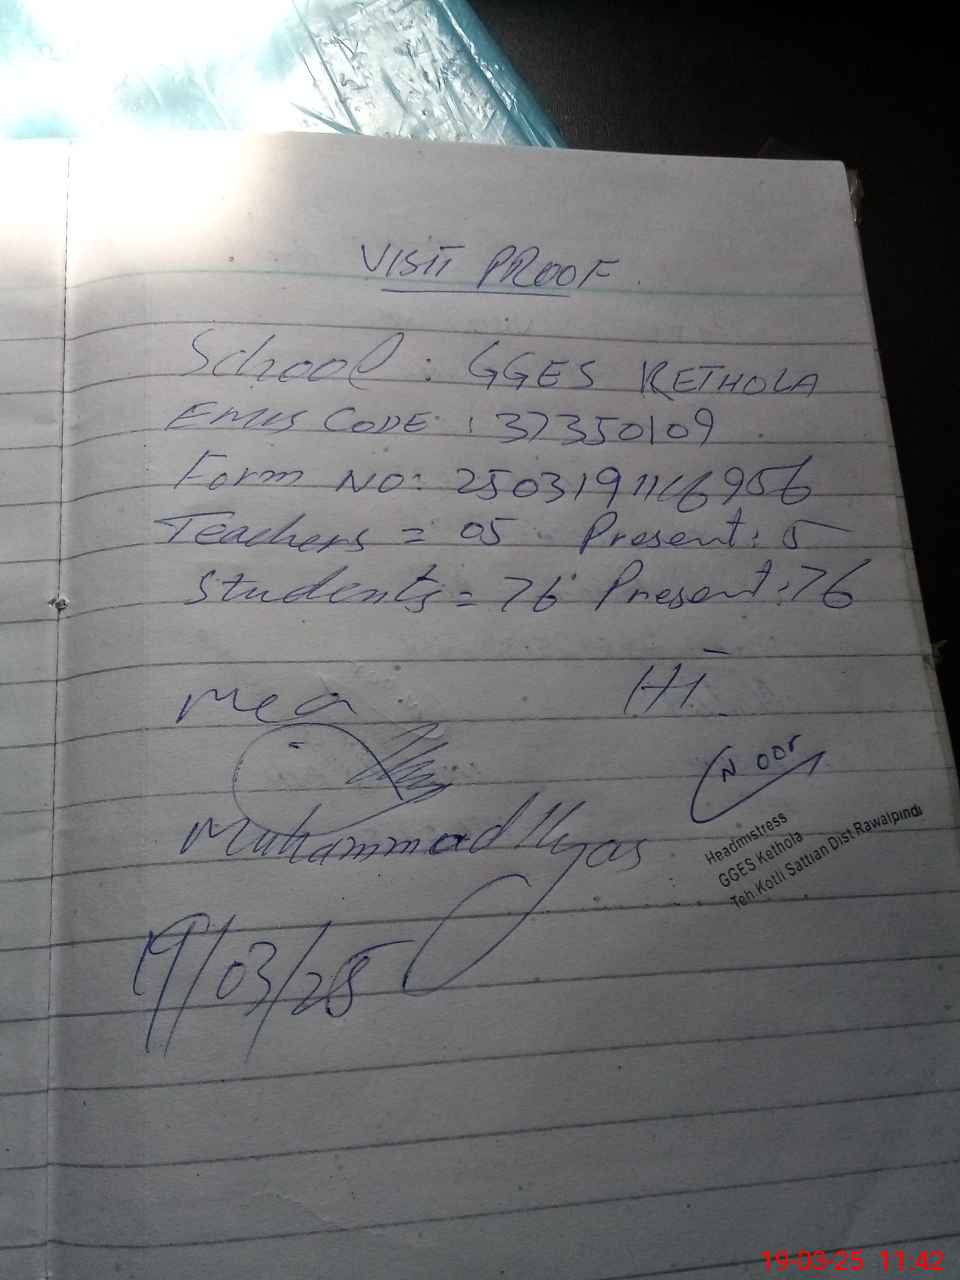 VISIT PROOF
School : GGES KETHOLA
EMIS CODE : 37350109
Form NO: 250319116956
Teachers = 05 Present: 5
Students = 76 Present: 76
MEA
HT
Noor
Muhammad Ilyas
Headmistress
GGES Kethola
Teh.Kotli Sattian Dist.Rawalpindi
19/03/25
19-03-25 11:42